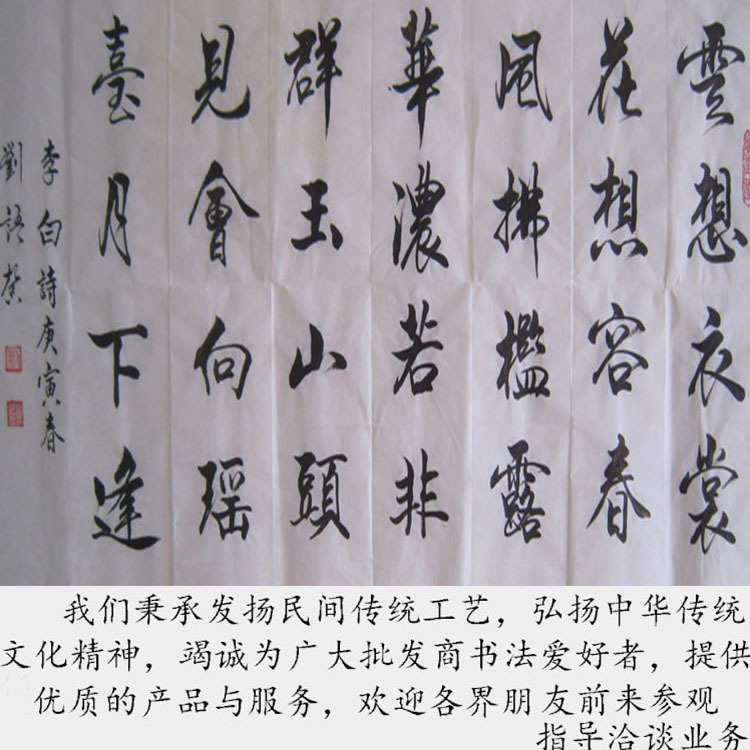 雲想衣裳
花想容春
風拂檻露
華濃若非
群玉山頭
見會向瑶
臺月下逢
李白詩庚寅春
劉語
我们秉承发扬民间传统工艺，弘扬中华传统
文化精神，竭诚为广大批发商书法爱好者，提供
优质的产品与服务，欢迎各界朋友前来参观
指导洽谈业务